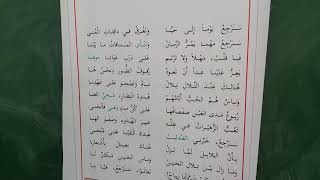 سَنَرْجِعُ يَوْماً إلى حَيِّنا وَنَغْرقُ في دافِئاتِ المُنَى
سَنَرْجِعُ مَهْما يَمُرُّ الزَّمانُ وَتَنْأى المَسافاتُ ما بَيْنَنا
فَيا قَلْبُ، مَهْلاً وَلا تَرْتَمِ عَلى دَرْبِ عَوْدَتِنا مُوهَنا
يَعِزُّ عَلَيْنا غَداً أنْ تَعودَ رُفوفُ الطُّيُورِ وَنَحْنُ هُنا
هُنالِكَ عِنْدَ التِّلالِ تِلالٌ تَنامُ وَتَصْحو عَلى عَهْدِنا
وَناسٌ هُمُ الحُبُّ أيَّامُهُمْ هُدوءُ انْتِظارٍ، شَجِيُّ الغِنا
رُبوعٌ مَدى العَيْنِ صَفْصافُها عَلى كُلِّ ماءٍ وَهَى فَانْحَنى
تَعُبُّ الزُّهَيْراتُ في ظِلِّهِ عَبيرَ الهُدوءِ وَصَفْوَ الهَنا
سَنَرْجِعُ، خَبَّرَني العَنْدَليبُ غَداةَ الْتَقَيْنا عَلى مُنْحَنى
بِأنَّ البَلابِلَ لَمَّا تَزَلْ هُناكَ تَعيشُ بِأشْعارِنا
وَما زالَ بَيْنَ تِلالِ الحَنينِ وَناسِ الحَنينِ مَكانٌ لَنا
رِياحٌ سَنَرْجِعُ، هَيَّا بِنا